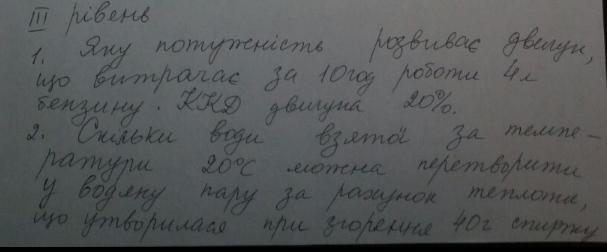 III рівень
1. Яку потужність розвиває двигун,
що витрачає за 10год роботи 4л
бензину. ККД двигуна 20%.
2. Скільки води взятої за темпе-
ратури 20°C можна перетворити
у водяну пару за рахунок теплоти,
що утворилася при згорення 40г спирту